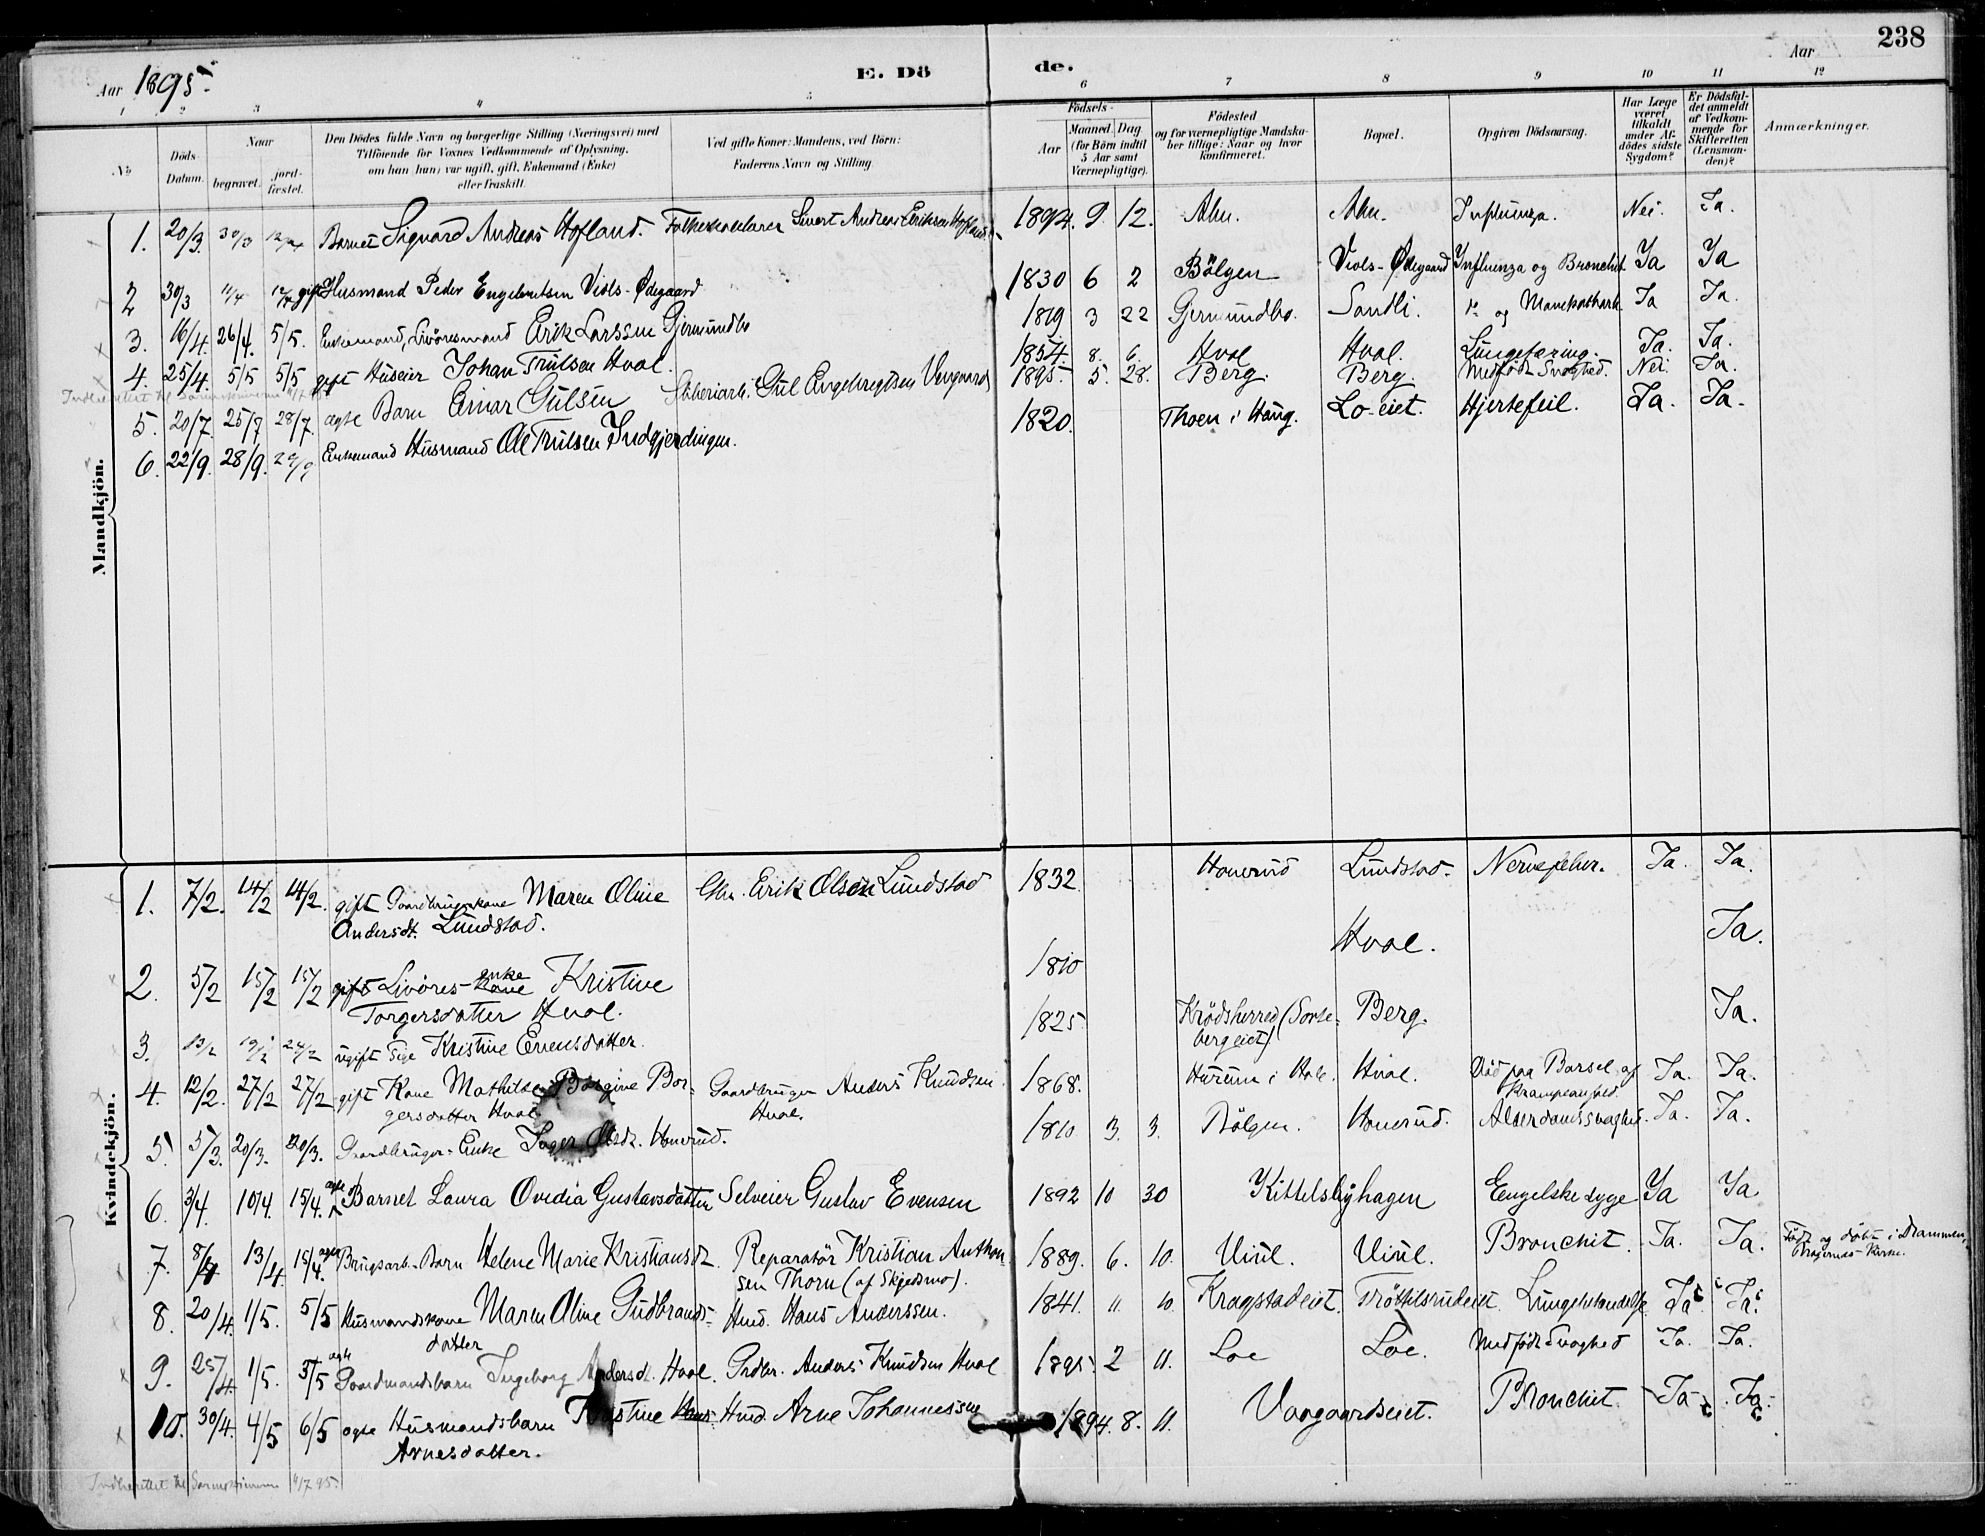 238
Aar 1895.
E. Dö
de.
Aar
1 2 3 4 5 6 7 8 9 10 11 12
No
Döds-Datum.
Naar
begravet.
jordfæstet.
Den Dödes fulde Navn og borgerlige Stilling (Næringsvei) med
Tilföiende for Voxnes Vedkommende af Oplysning,
om han (hun) var ugift, gift, Enkemand (Enke)
eller fraskilt.
Ved gifte Koner: Mandens, ved Börn:
Faderens Navn og Stilling.
Födsels-
Aar
Maaned. Dag
(for Börn indtil
5 Aar samt
Værnepligtige).
Födested
og for værnepligtige Mandska-
ber tillige: Naar og hvor
konfirmeret.
Bopæl.
Opgiven Dödsaarsag.
Har Læge
været
tilkaldt
under Af-
dödes sidste
Sygdom?
Er Dödsfal-
det anmeldt
af Vedkom-
mende for
Skifteretten
(Lensman-
den)?
Anmærkninger.
Mandkjön.
1. 20/3. 30/3 12/4 Barnet Sigvard Andreas Hofland. Folkeskolelærer Sivert Andreas Eriksen Hofland 1894. 9. 12. Influenza. Nei. Ja.
2 30/3 11/4 12/4 gift Husmand Peder Engebretsen Viols-Ødegaard 1830 6 2 Bölgen Viols-Ødegaard Influenza og Bronchit Ja Ja
3. 16/4. 26/4. 5/5. Enkemand, Livöresmand Erik Larssen Gjermundbo 1819 3 22 Gjermundbo. Sandli. do og Ja Ja.
4. 25/4. 5/5 5/5 gift Huseier Johan Trulsen Hval. 1854. 8. 6. Hval Hval. Lungetæring. Ja. Ja.
Indberettet til
5. 20/7. 25/7 28/7. ægte Barn Einar Gulsen Sliberiarb. Gul Engebregtsen 1895. 5. 28. Berg. Berg. Medfödt Svaghed. Nei. Ja.
6. 22/9. 28/9. 29/9 Enkemand Husmand Ole Trulsen Indgjerdingen. 1820. Thoen i Haug. Lo-eiet. Hjertefeil. Ja. Ja.
Kvindekjön.
1. 7/2. 14/2 14/2. gift Gaardbrugerkone Maren Oline Gbr. Erik Olsen Lundstad 1832 Honerud Lundstad. Nervefeber. Ja. Ja.
Andersdt. Lundstad.
2. 5/2 15/2 15/2 gift Livöres-kone enke Kristine 1810 Hval. Ja.
Torgersdatter Hval.
3. 13/2 19/2 24/2 ugift Pige Kristine Evensdatter. 1825 Krödsherred (Sorte- Berg. Ja.
bergeiet)
4. 12/2. 27/2 27/2 gift Kone Mathilde Borgine Bor- Gaardbruger Anders Knudsen 1868. Hurum i Hole. Hval. Död paa Barsel af Ja. Ja.
gersdatter Hval. Hval. Krampeanfald.
5. 5/3. 20/3. 20/3. Gaardbruger-Enke Inger Olsdr. Honerud. 1810 3. 3. Bölgen. Honerud. Alderdomssvaghed. Ja. Ja.
6. 3/4. 10/4. 15/4. ægte Barnet Laura Ovidia Gustavsdatter Selveier Gustav Evensen 1892 10 30 Kittelsbyhagen Engelske syge Ja Ja
7. 8/4 13/4. 15/4. ægte Brugsarb.-Barn Helene Marie Kristiansdt. Reparatör Kristian Anthon- 1889. 6. 10. Viul. Viul. Bronchit. Ja. Ja. Födt og döbt i Drammen,
sen Thorn (af Skjedsmo). Bragernes Kirke.
8. 20/4. 1/5. 5/5 Husmandskone Maren Oline Gudbrands- Hmd. Hans Anderssen. 1841. 11. 10. Kragstadeiet. Tröttelsrudeiet. Lungebetændelse Ja Ja.
datter
9. 25/4. 1/5. 5/5 ægte Gaardmandsbarn Ingeborg Andersdt. Hval. Grdbr. Anders Knudsen Hval 1895 2 11. Loe Loe. Medfödt Svaghed Ja. Ja.
10. 30/4. 4/5 6/5 ægte Husmandsbarn Kristine Hmd. Arne Johannessen 1894. 8. 11. Vaagaardseiet. Bronchit. Ja Ja.
Arnesdatter.
Indberettet til 11/7 95.